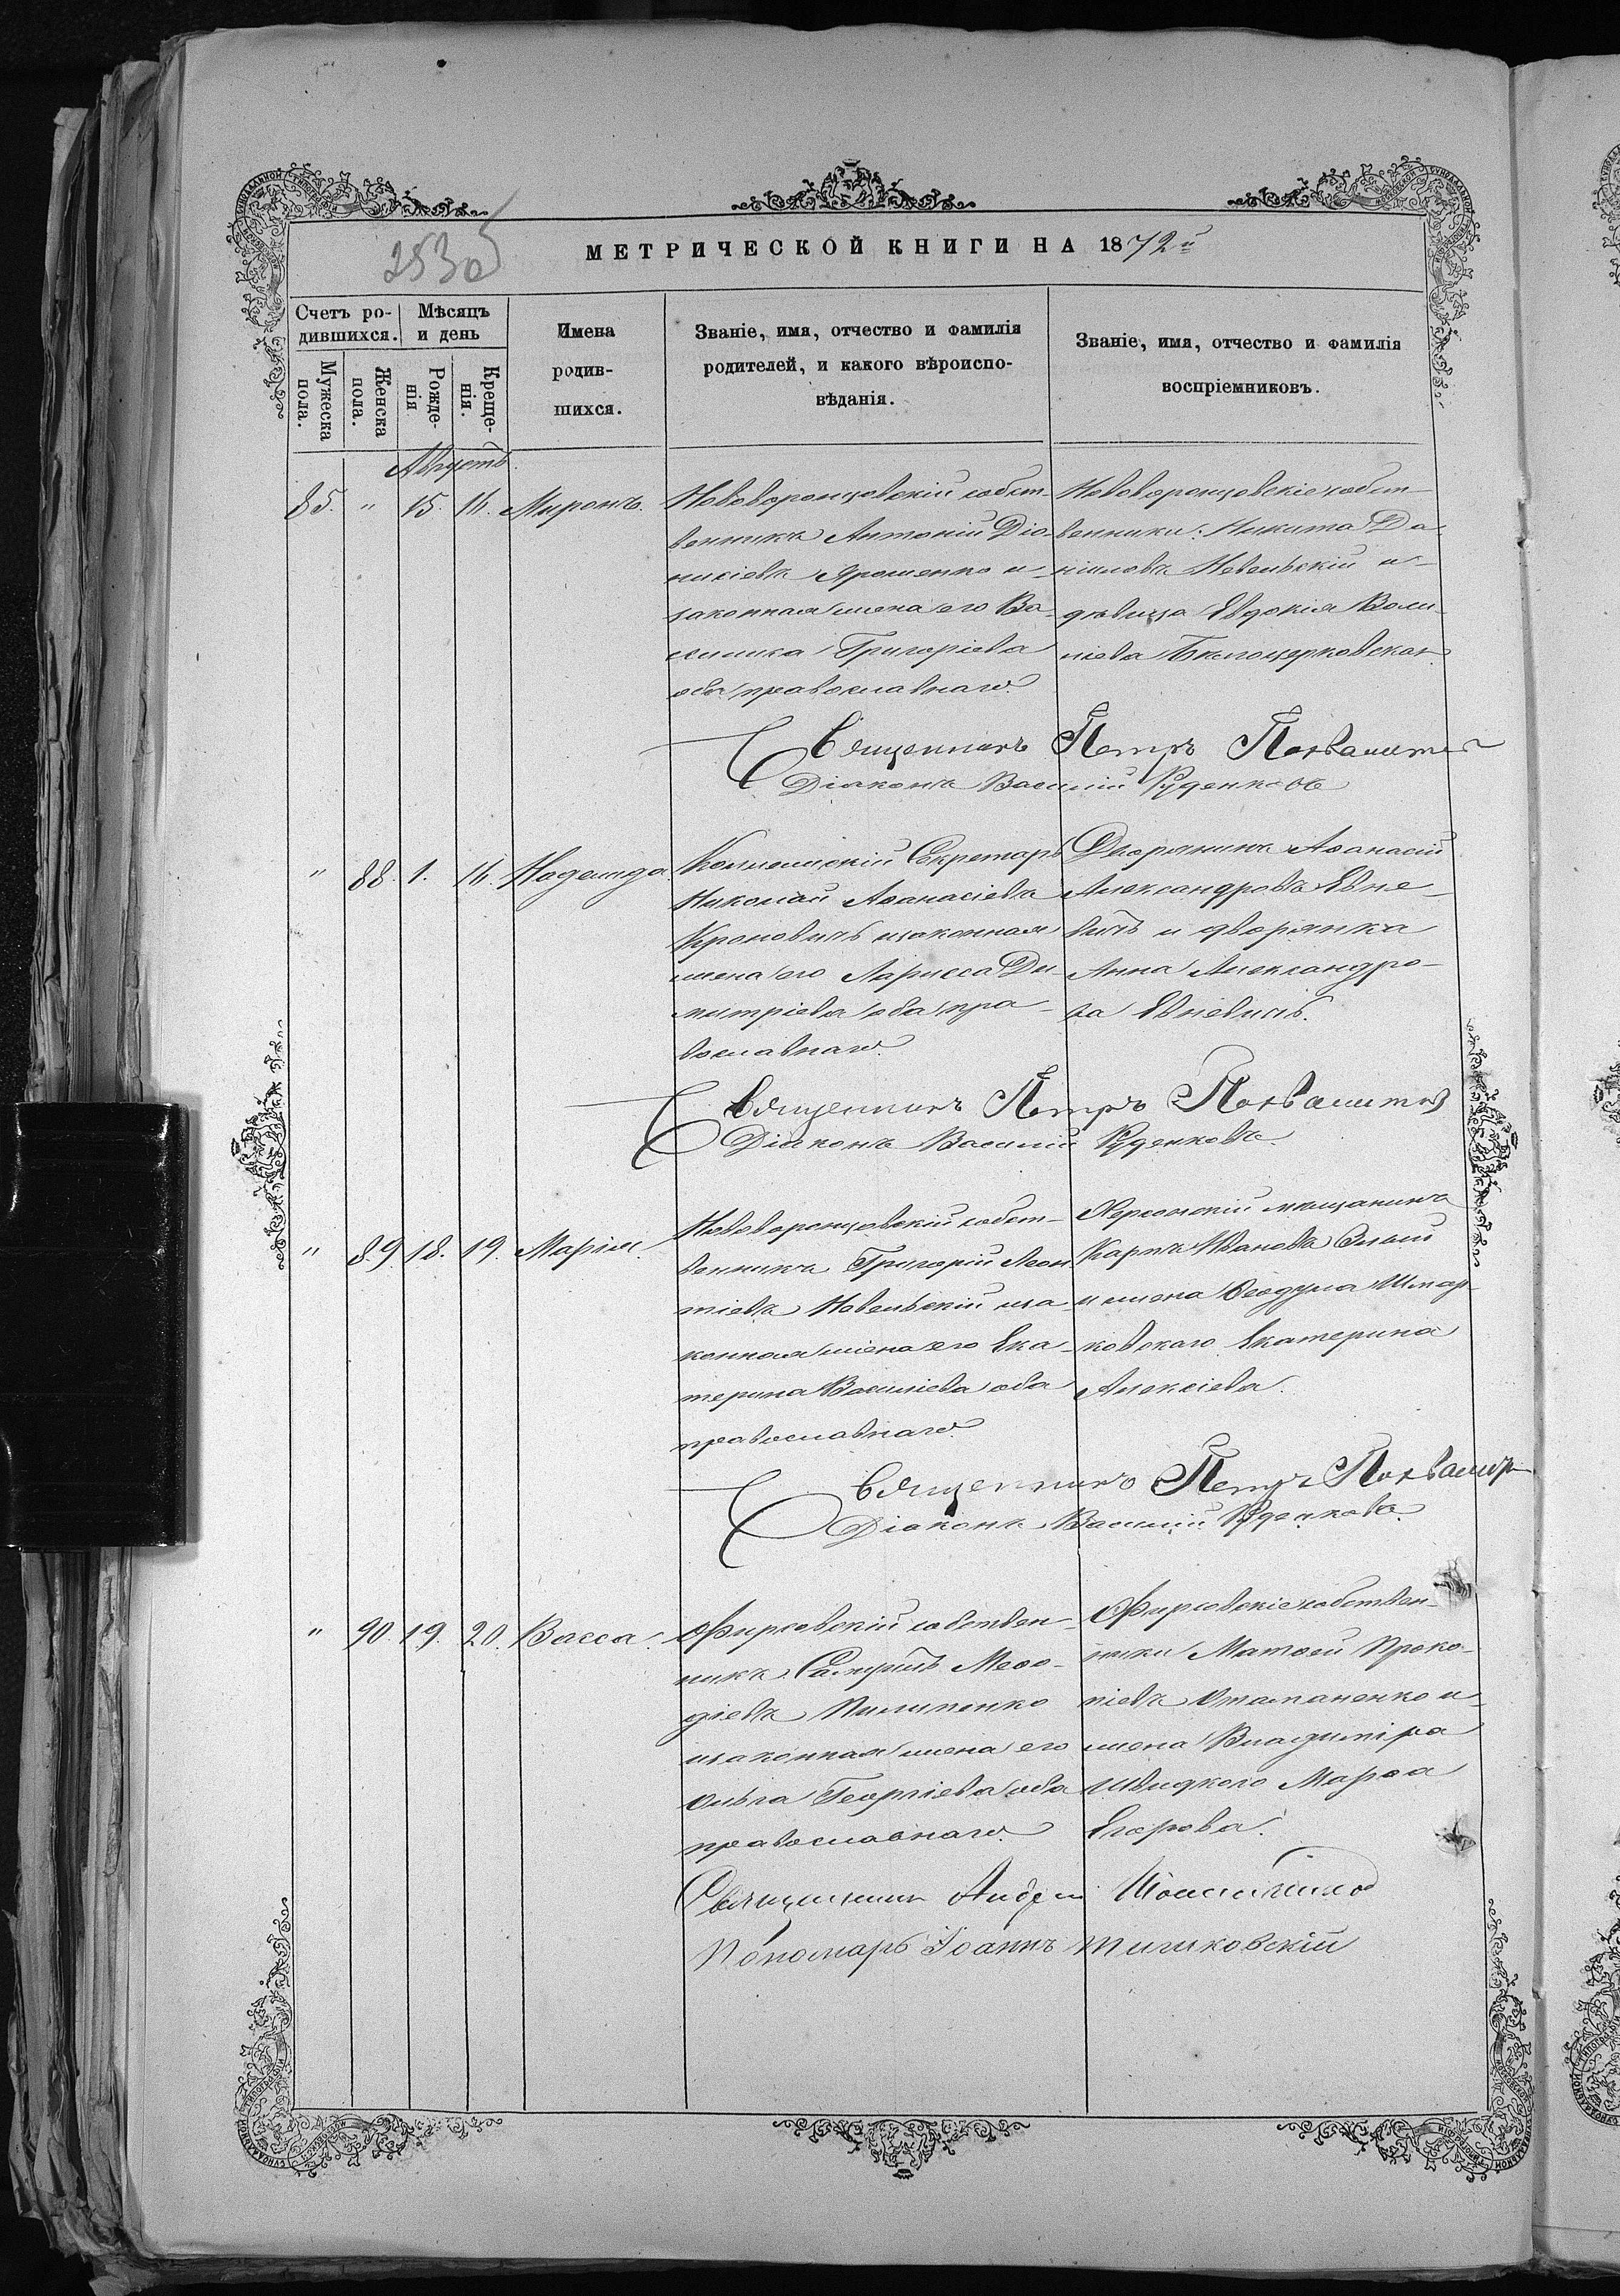 МЕТРИЧЕСКОЙ КНИГИ НА 1872й
Счетъ ро-
дившихся.
Мѣсяцъ
и день
Имена
родив-
шихся.
Званіе, имя, отчество и фамилія
родителей, и какого вѣроиспо-
вѣданія.
Званіе, имя, отчество и фамилія
воспріемниковъ.
Мужеска
пола.
Женска
пола.
Рожде-
нія
Креще-
нія.
Августъ.
85. " 15. 16. Миронъ.
Нововоронцовскій собст-
венникъ Антоній Діо-
нисіевъ Ярошенко и
законная жена его Ва-
силиса Григоріева
оба православнаго.
Нововоронцовскіе собст-
венники: Никита Да-
ніиловъ Невельскій и
дѣвица Евдокія Васи-
ліева Бѣлоцерковская.
Священникъ Петръ
Діаконъ Василій Руденковъ
" 88. 1. 16. Надежда.
Коллежскій Секретарь
Николай Аѳанасіевъ
законная
жена его Ларисса Ди-
митріева оба пра-
вославнаго.
Дворянинъ Аѳанасій
Александровъ Евне-
вичъ и дворянка
Анна Александро-
ва Евневичъ.
Священникъ Петръ
Діаконъ Василій Руденковъ.
" 89. 18. 19. Марія.
Нововоронцовскій собст-
венникъ Григорій Леон
тіевъ Невельскій и за
конная жена его Ека-
терина Василіева оба
православнаго.
Херсонскій мѣщанинъ
Карпъ Ивановъ
и жена Ѳеодула
ковскаго Екатерина
Алексіева.
Священникъ Петръ
Діаконъ Василій Руденковъ.
" 90. 19. 20. Васса.
Фирсовскій собствен-
никъ Меѳо-
діевъ Пилипенко
и законная жена его
Ольга Георгіева оба
православнаго.
Фирсовскіе собствен-
ники Матѳей Проко-
піевъ Отаманенко и
жена Владиміра
Швидкого Марѳа
Егорова.
Священникъ Андрей
Пономарь Іоаннъ